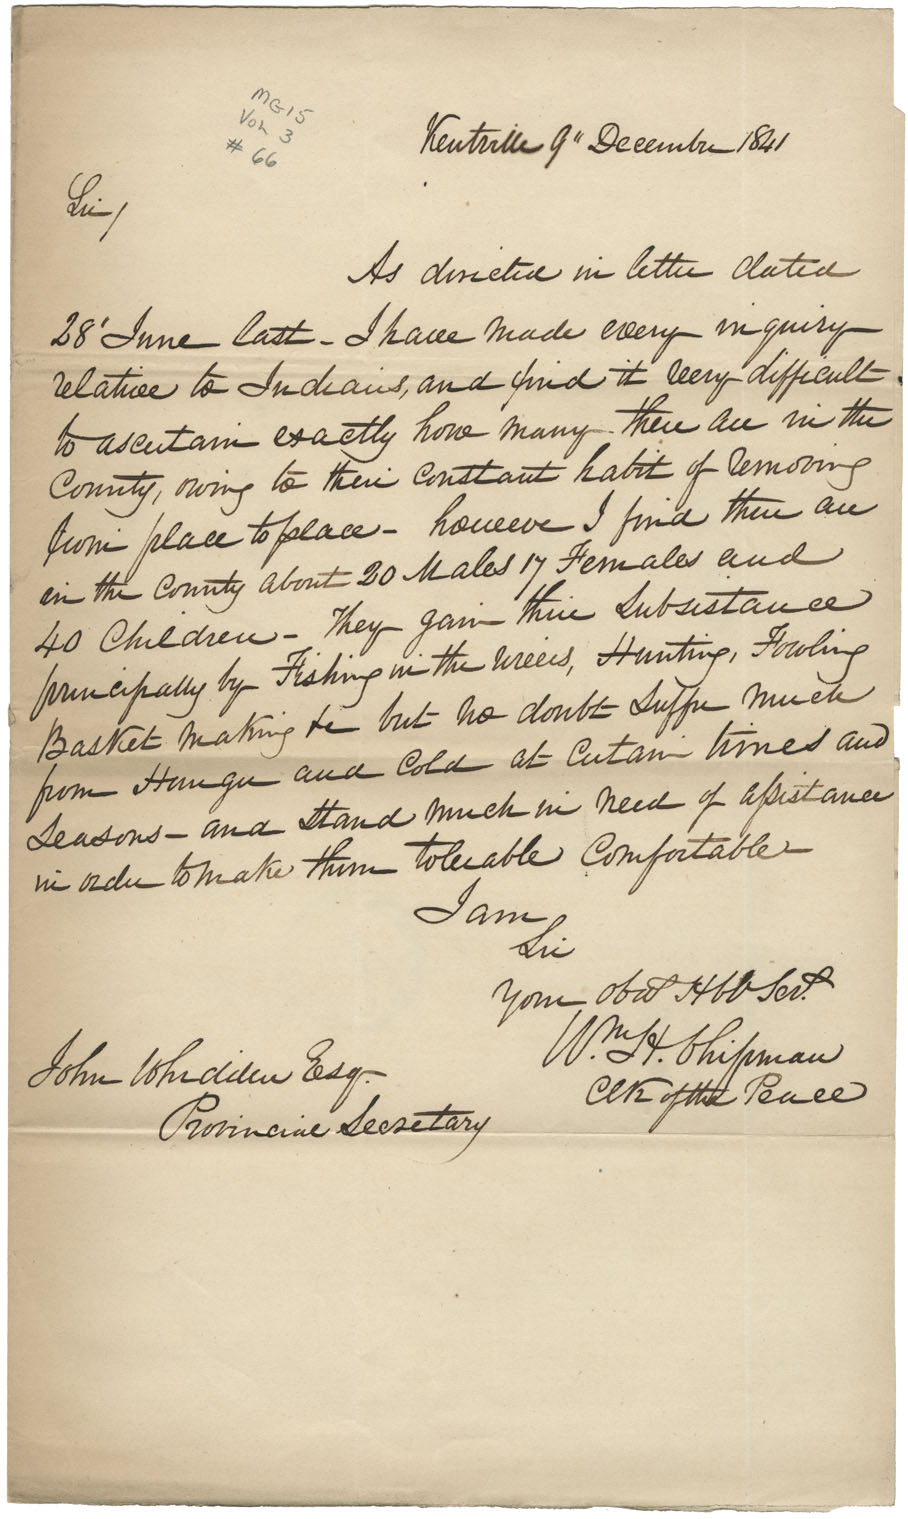 MG15
Vol 3
# 66
Kentville 9" December 1841
Sir/
As directed in letter dated
28' June last - I have made every inquiry
relative to Indians, and find it very difficult
to ascertain exactly how many there are in the
County, owing to their constant habit of removing
from place to place - however I find there are
in the County about 20 Males 17 Females and
40 Children - They gain their Subsistance
principally by Fishing in the Rivers, Hunting, Fowling
Basket Making &c but no doubt Suffer much
from Hunger and Cold at Certain times and
Seasons - and Stand much in need of assistance
in order to make them tolerable Comfortable -
I am
Sir
Your obdt Hble Servt
Wm. H. Chipman
Clk of the Peace
John Whidden Esq.
Provincial Secretary